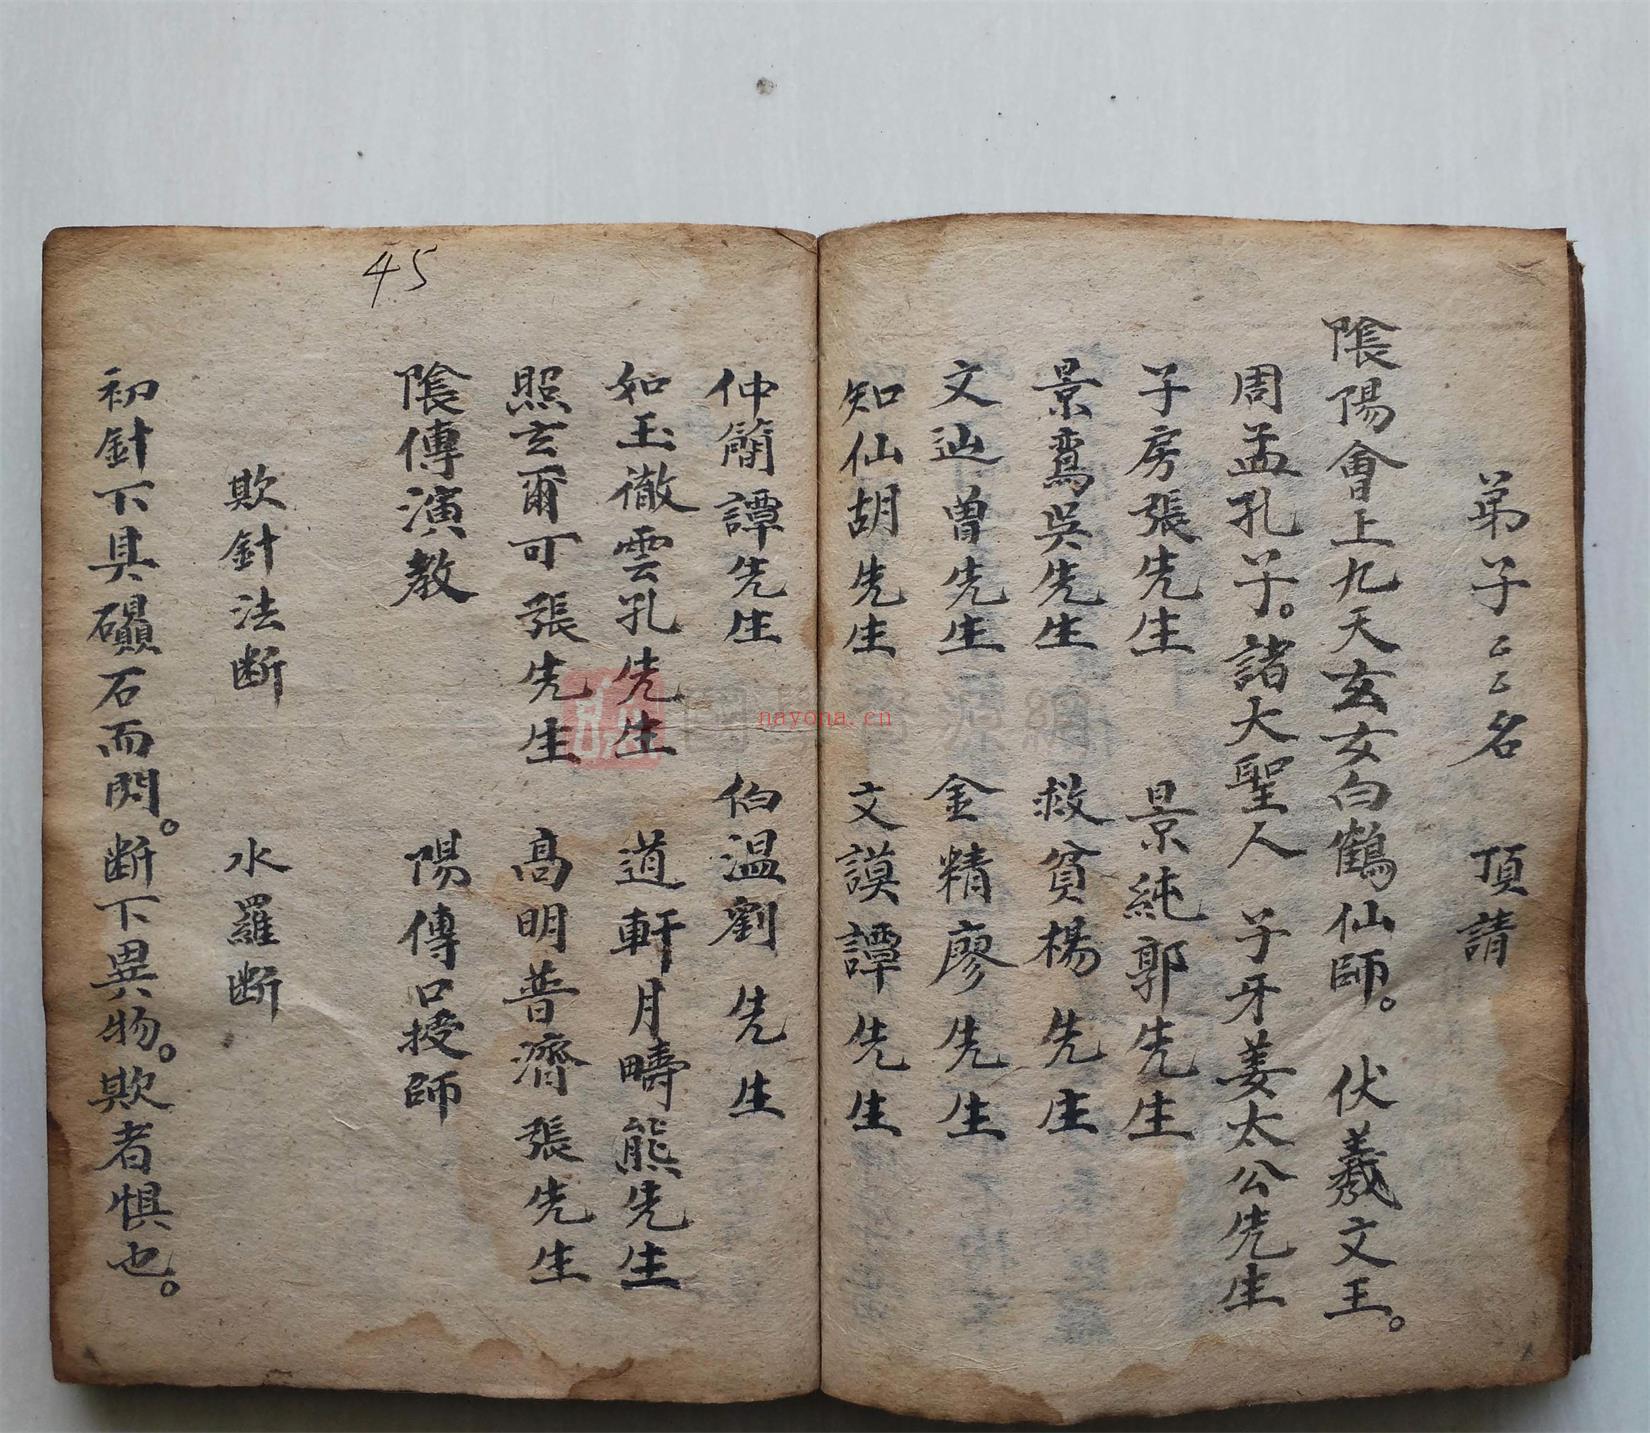 弟子〻〻名　頂請
隂陽會上九天玄女白鶴仙師。伏羲文王。
周孟孔子。諸大聖人　子牙姜太公先生
子房張先生　景純郭先生
景鸞吳先生　救貧楊先生
文辿曾先生　金精廖先生
知仙胡先生　文謨譚先生
仲簡譚先生　伯温劉先生
如玉徹雲孔先生　道軒月疇熊先生
照玄爾可張先生　高明普濟張先生
隂傳演教　陽傳口授師
欺針法断　水羅断
初針下具礥石而閃。断下異物。欺者惧也。
45
國學資源網
nayona.cn